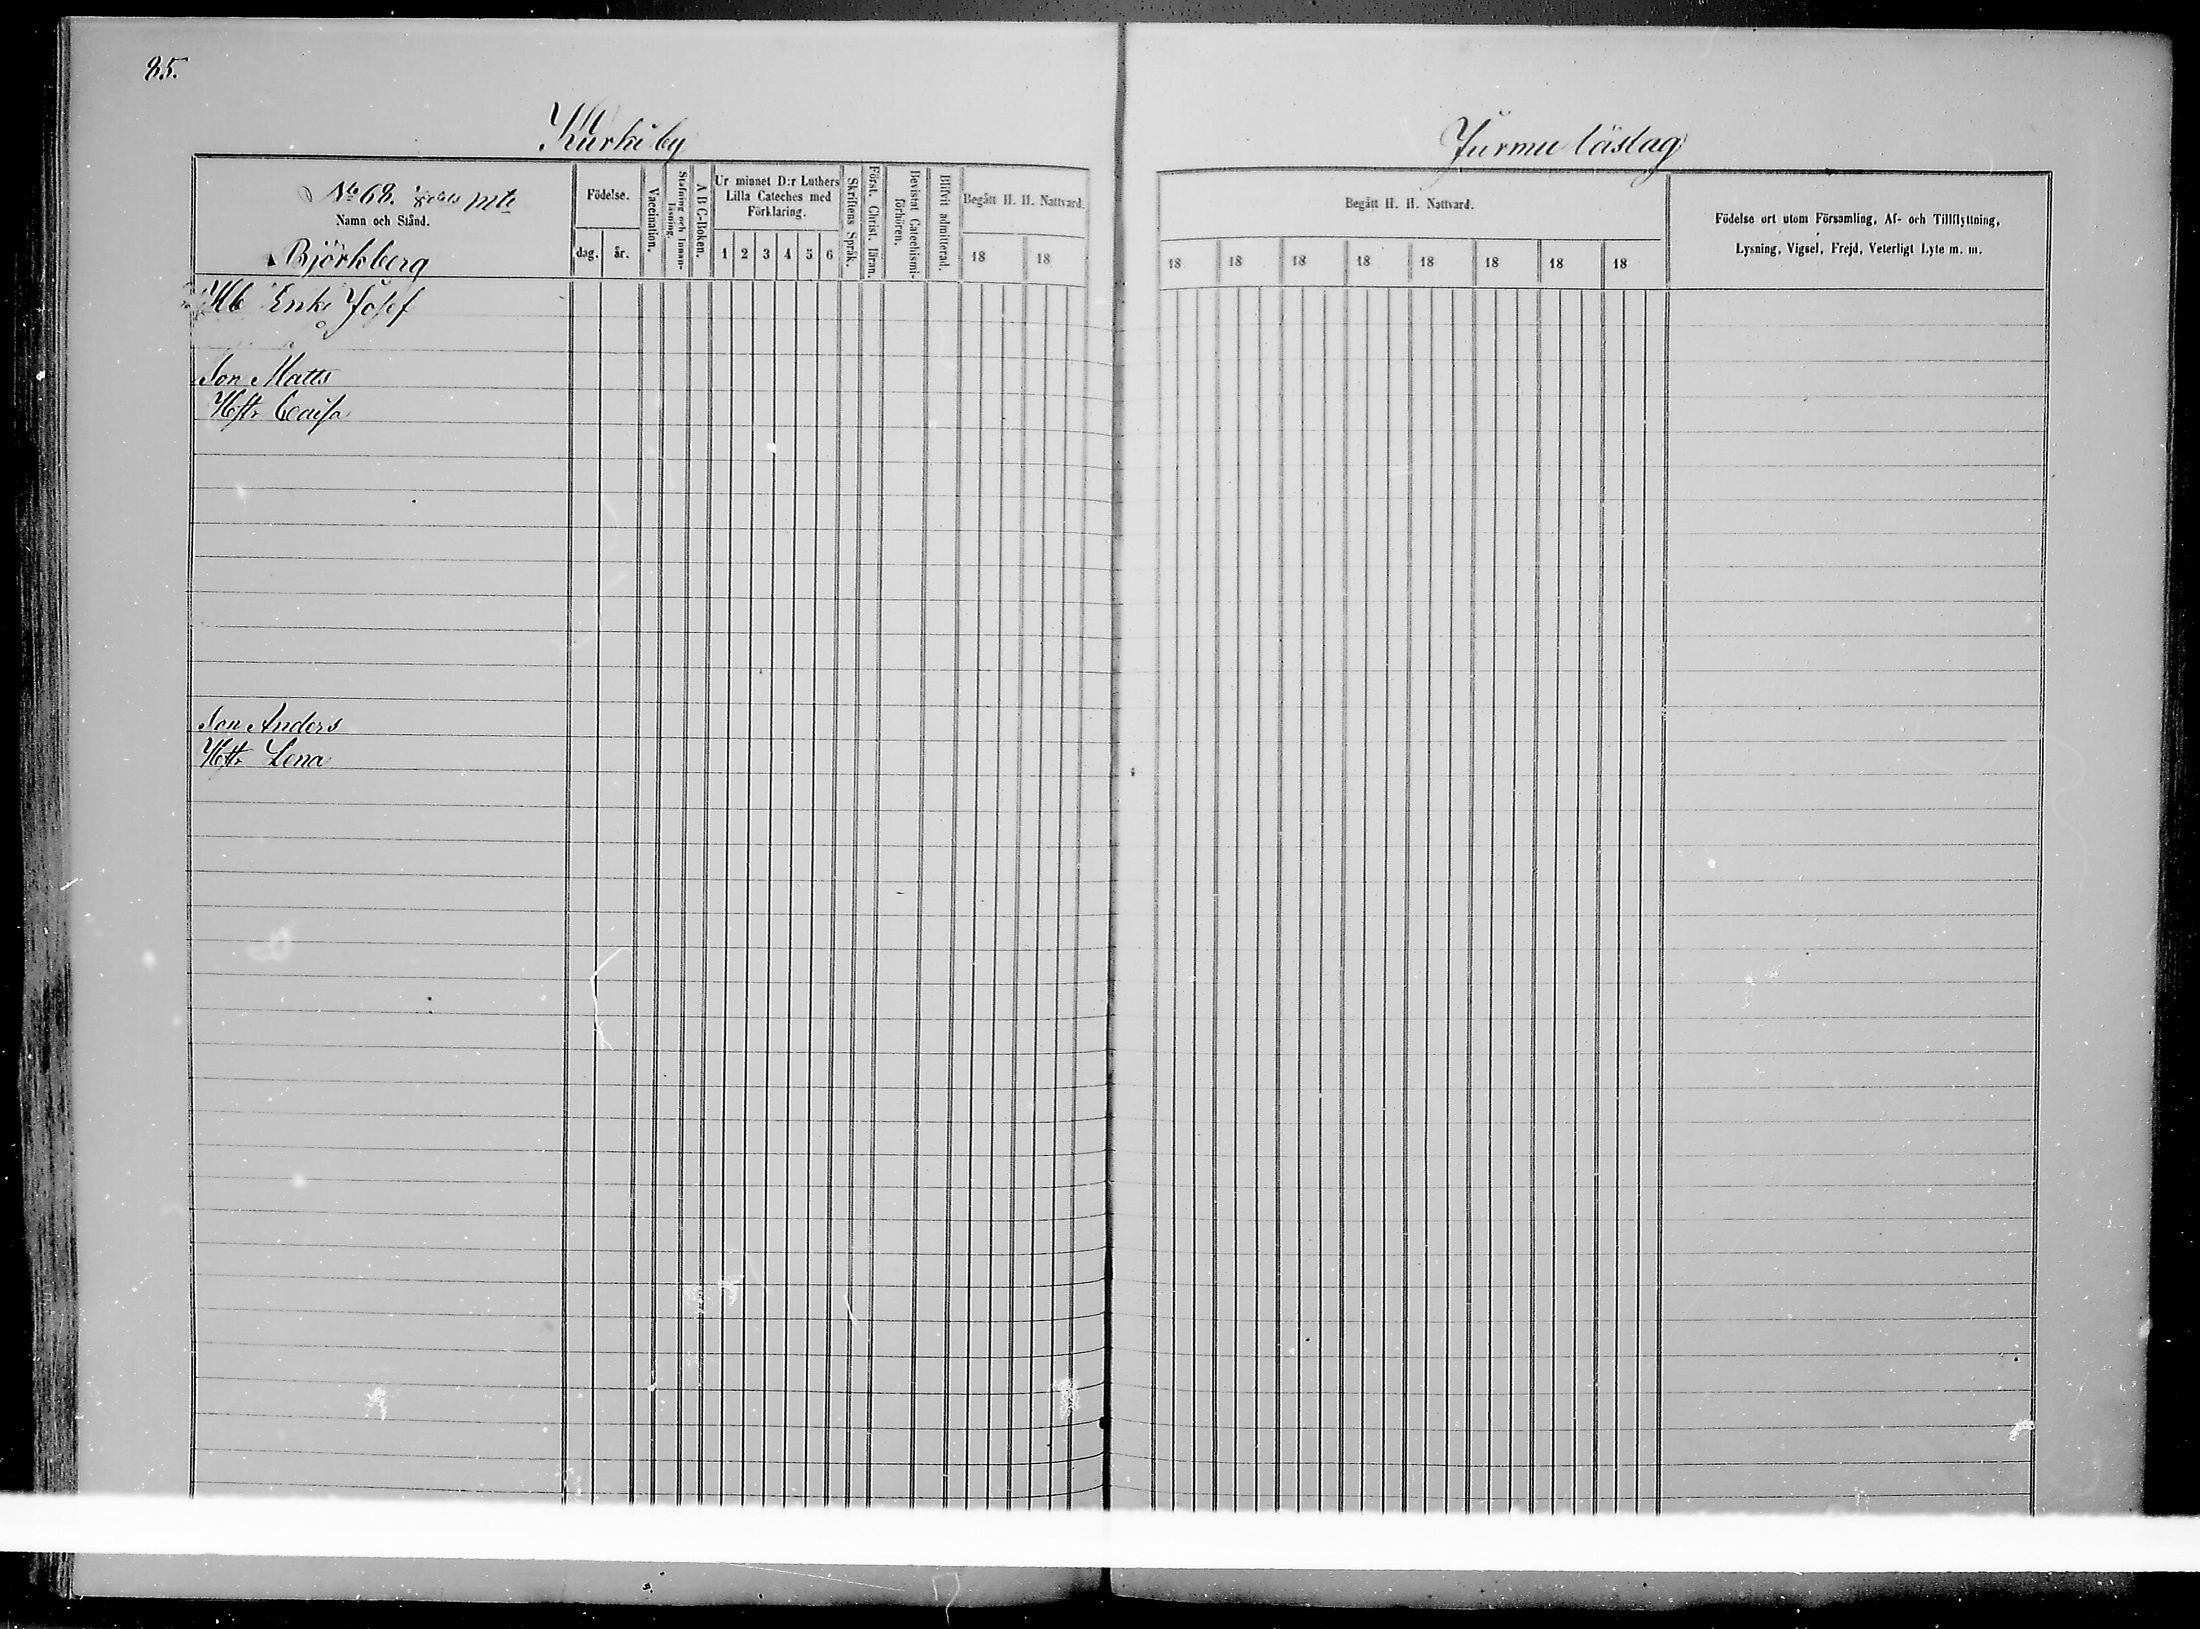 85.
Kurki by
Jurmu läslag
No 68. mtl
Namn och Stånd.
Björkberg
Födelse.
dag. år.
Vaccination.
Stafning och Innan-
läsning.
A B C-Boken.
Ur minnet D:r Luthers
Lilla Cateches med
Förklaring.
1 2 3 4 5 6
Skriftens Språk.
Först. Christ. läran.
Bevistat Catechismi-
förhören.
Blifvit admitterad.
Begått H. H. Nattvard.
18 18
Begått H. H. Nattvard.
18 18 18 18 18 18 18 18
Födelse ort utom Församling, Af- och Tillflyttning,
Lysning, Vigsel, Frejd, Veterligt Lyte m. m.
Enkl Josef
Son Matts
Hstr Caisa
Son Anders
Hstr Lena